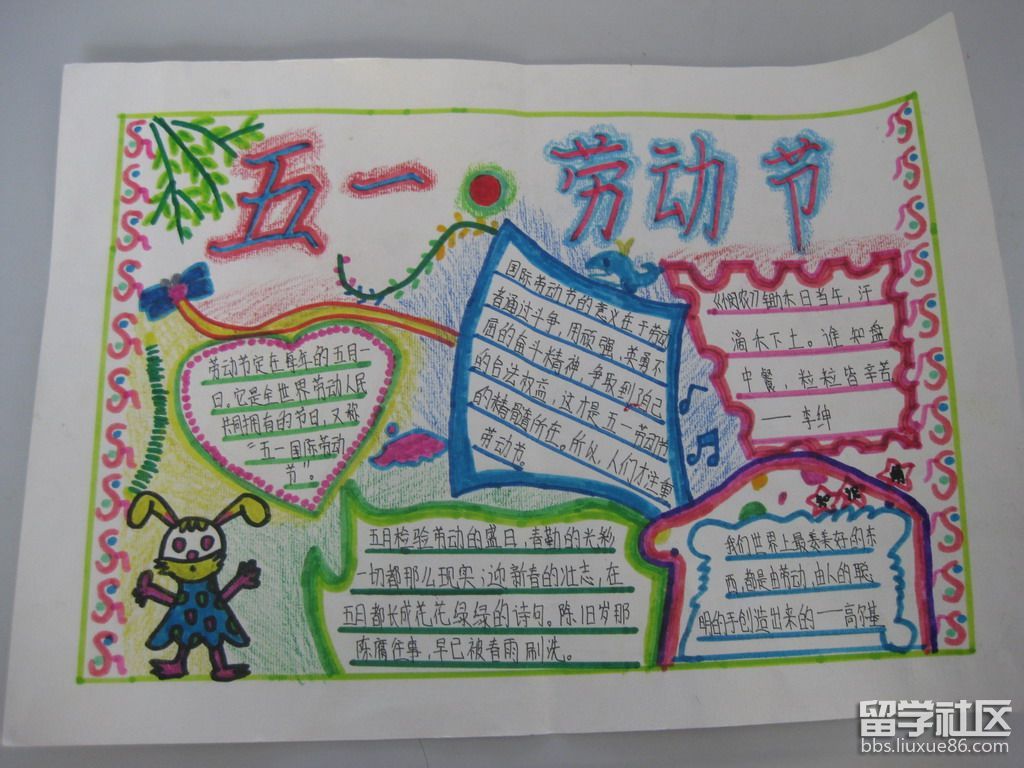 五一 劳动节
劳动节定在每年的五月一
日。它是全世界劳动人民
共同拥有的节日，又被
“五一国际劳动
节”。
国际劳动节的意义在于劳动
者通过斗争，用顽强、英勇不
屈的奋斗精神，争取到了自己
的合法权益，这才是五一劳动节
的精髓所在。所以，人们才注重
劳动节。
《悯农》锄禾日当午，汗
滴禾下土。谁知盘
中餐，粒粒皆辛苦。
——李绅
五月检验劳动的盛日，春勤的光彩
一切都那么现实；迎新春的壮志，在
五月都长成花花绿绿的诗句。陈旧岁那
陈腐往事，早已被春雨刷洗。
我们世界上最美好的东
西，都是由劳动、由人的聪
明的手创造出来的——高尔基
留学社区
bbs.liuxue86.com